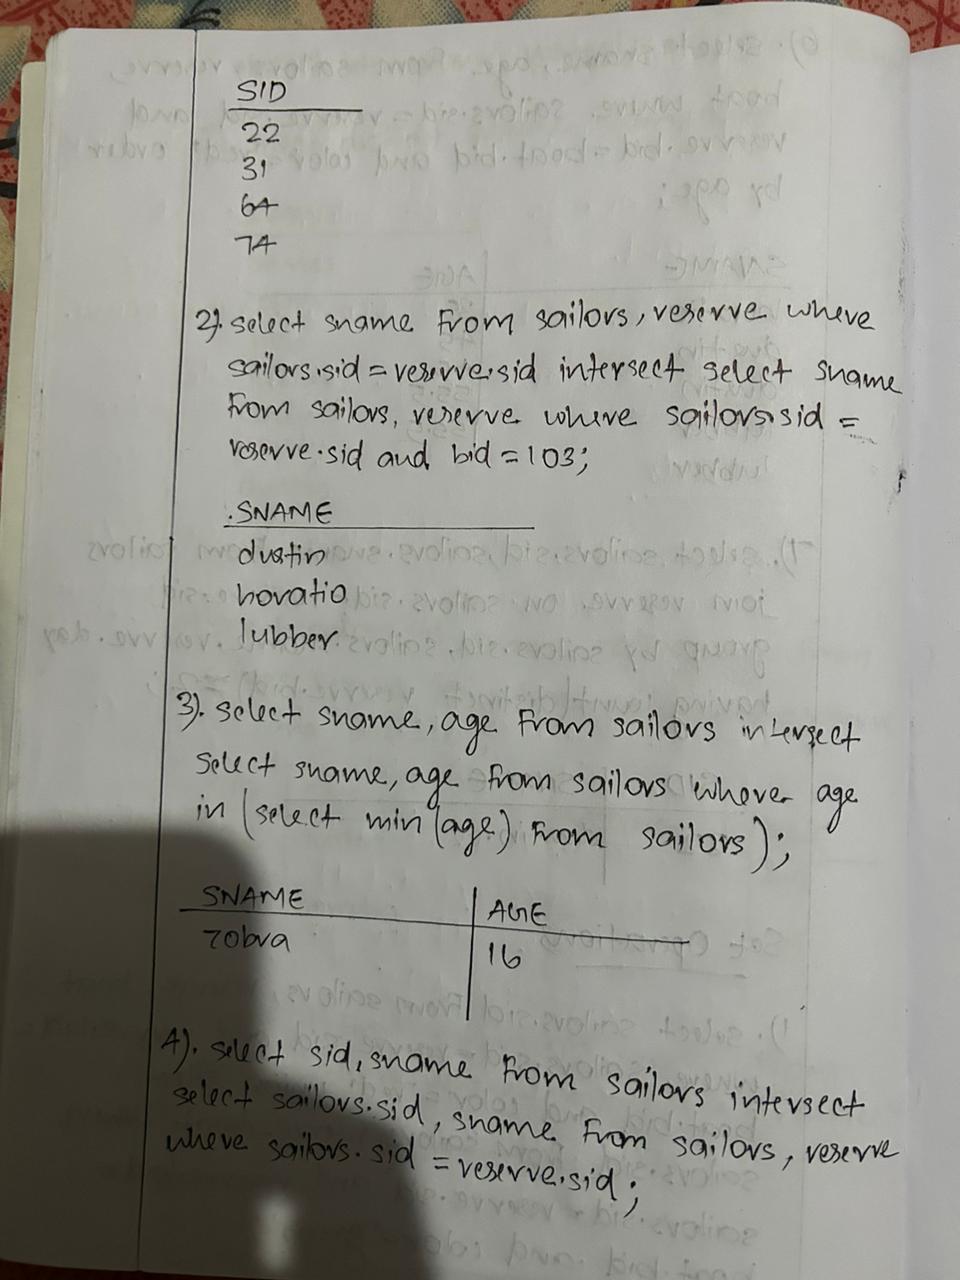 SID
22
31
64
74
2). select sname from sailors, reserve where
sailors.sid = reserve.sid intersect select sname
from sailors, reserve where sailors.sid =
reserve.sid and bid = 103;
SNAME
dustin
horatio
lubber
3). select sname, age from sailors intersect
select sname, age from sailors where age
in (select min(age) from sailors);
SNAME AGE
zobra 16
4). select sid, sname from sailors intersect
select sailors.sid, sname from sailors, reserve
where sailors.sid = reserve.sid;